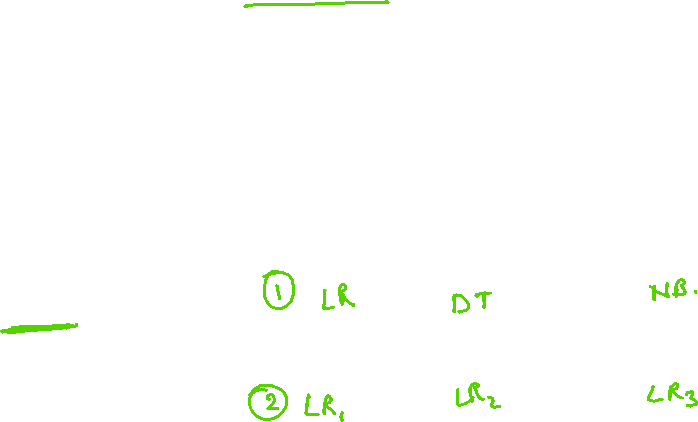 ① LR DT NB.
② LR₁ LR₂ LR₃